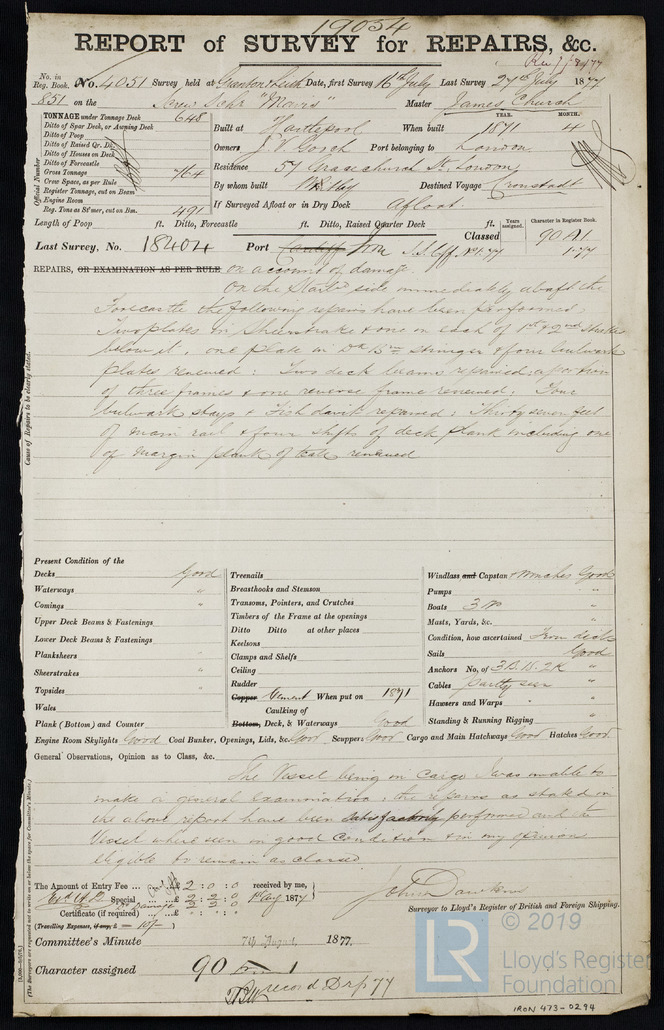 19054
REPORT of SURVEY for REPAIRS, &c.
No. in Reg. Book. No. 4051 Survey held at Granton & Leith Date, first Survey 16th July Last Survey 27th July 1877
851 on the Screw Schr "Mavis" Master James Church
TONNAGE under Tonnage Deck 648
Ditto of Spar Deck, or Awning Deck
Ditto of Poop
Ditto of Raised Qr. Dk.
Ditto of Houses on Deck
Ditto of Forecastle
Gross Tonnage 764
Crew Space, as per Rule
Register Tonnage, cut on Beam
Engine Room
Reg. Tons as St'mer, cut on Bm. 491
Official Number
Built at Hartlepool When built YEAR. 1871 MONTH. 4
Owners J. V. Gooch Port belonging to London
Residence 57 Gracechurch St. London
By whom built Destined Voyage Cronstadt
If Surveyed Afloat or in Dry Dock Afloat.
Length of Poop ft. Ditto, Forecastle ft. Ditto, Raised Quarter Deck ft.
Years assigned. Character in Register Book.
Last Survey, No. 18404 Port Cardiff Iron Classed 90 A1
1.77
REPAIRS, OR EXAMINATION AS PER RULE, on account of damage.
On the Starbd side immediately abaft the
Forecastle the following repairs have been performed
Two plates in Sheerstrake & one on each of 1st & 2nd strakes
below it, one plate in Dk Bm Stringer & four bulwark
plates renewed: Two deck beams repaired; a portion
of three frames & one reverse frame renewed; Four
bulwark stays & Fish davit repaired; Thirty seven feet
of main rail & four shifts of deck plank including one
of margin plank of teak renewed
Cause of Repairs to be clearly stated.
Present Condition of the
Decks Good
Waterways "
Comings "
Upper Deck Beams & Fastenings
Lower Deck Beams & Fastenings
Planksheers "
Sheerstrakes "
Topsides "
Wales
Plank (Bottom) and Counter
Treenails
Breasthooks and Stemson
Transoms, Pointers, and Crutches
Timbers of the Frame at the openings
Ditto Ditto at other places
Keelsons
Clamps and Shelfs
Ceiling
Rudder
Copper Cement When put on 1871
Caulking of
Bottom, Deck, & Waterways Good
Windlass and Capstan & Winches Good
Pumps "
Boats 3 No "
Masts, Yards, &c. "
Condition, how ascertained From deck
Sails Good
Anchors No. of 3B. 1S. 2K "
Cables partly seen "
Hawsers and Warps "
Standing & Running Rigging "
Engine Room Skylights Good Coal Bunker, Openings, Lids, &c. Good Scuppers Good Cargo and Main Hatchways Good Hatches Good
General Observations, Opinion as to Class, &c.
The Vessel being in Cargo I was unable to
make a general examination, the repairs as stated in
the above report have been satisfactorily performed and the
Vessel where seen in good Condition & in my opinion
eligible to remain as classed
The Amount of Entry Fee £ 2 : 0 : 0 received by me,
Special £ 2 : 2 : 0 1st Aug 1877
Certificate (if required) £ " : " : "
(Travelling Expenses, if any, £ 10/-)
John Dawkins
Surveyor to Lloyd's Register of British and Foreign Shipping.
Committee's Minute 7th August 1877.
Character assigned 90 A 1
record Drp 77
(The Surveyors are requested not to write on or below the space for Committee's Minute.)
© 2019
LR
Lloyd's Register
Foundation
IRON 473-0294